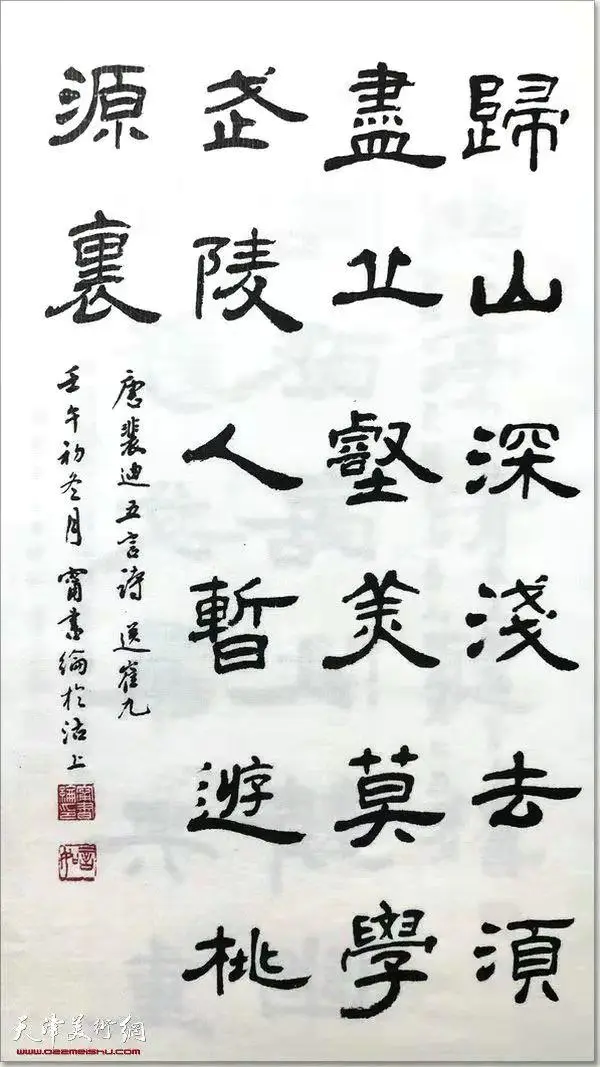 歸山深淺去須
盡丘壑美莫學
武陵人暫遊桃
源裏
唐裴迪五言詩 送崔九
壬午初冬月 甯書綸於沽上
甯書綸印
天津美術網
www.022meishu.com